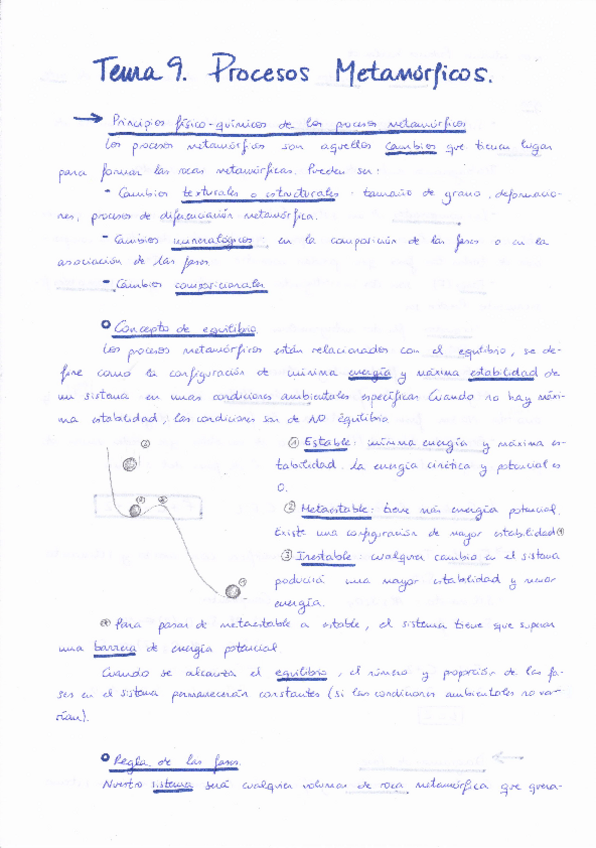 Tema 9. Procesos Metamórficos.
→ Principios físico-químicos de los procesos metamórficos
Los procesos metamórficos son aquellos cambios que tienen lugar
para formar las rocas metamórficas. Pueden ser:
- Cambios texturales o estructurales: tamaño de grano, deformacio-
nes, procesos de diferenciación metamórfica.
- Cambios mineralógicos: en la composición de las fases o en la
asociación de las fases
- Cambios composicionales
Concepto de equilibrio.
Los procesos metamórficos están relacionados con el equilibrio, se de-
fine como la configuración de mínima energía y máxima estabilidad de
un sistema en unas condiciones ambientales específicas. Cuando no hay máxi-
ma estabilidad, las condiciones son de NO equilibrio
① Estable: mínima energía y máxima es-
tabilidad. La energía cinética y potencial es
0.
② Metaestable: tiene más energía potencial.
Existe una configuración de mayor estabilidad
③ Inestable: cualquier cambio en el sistema
producirá una mayor estabilidad y menor
energía.
Para pasar de metaestable a estable, el sistema tiene que superar
una barrera de energía potencial.
Cuando se alcanza el equilibrio, el número y proporción de las fa-
ses en el sistema permanecerán constantes (si las condiciones ambientales no va-
rían).
Regla de las fases.
Nuestro sistema será cualquier volumen de roca metamórfica que quera-